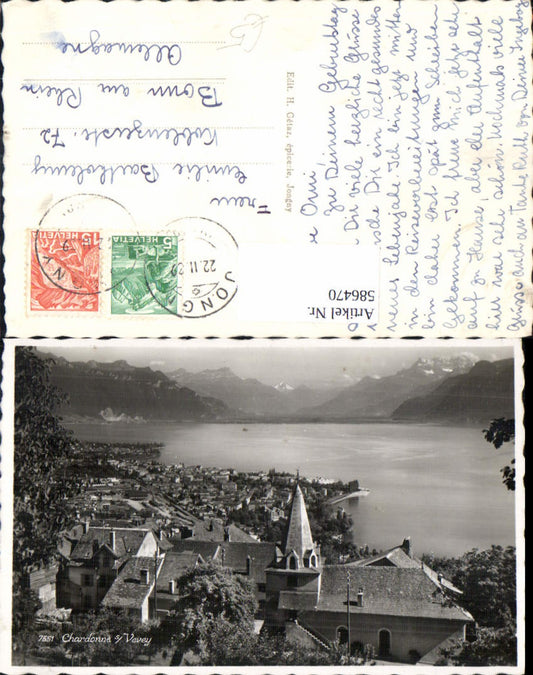 Liebe Omi!
Zu Deinem Geburtstag
Dir viele herzliche Grüsse
wünsche Dir ein recht gesundes
neues Lebensjahr. Ich bin jetzt mitten
in den Reisevorbereitungen und
bin daher erst spät zum Schreiben
gekommen. Ich freue mich jetzt sehr
auf zu Hause, aber der Aufenthalt
hier war sehr schön. Nochmals viele
Grüsse auch an Tante Ruth von Deiner Ingeborg
Edit. H. Cétaz, épicerie, Jongny
Frau
Emilie Bartholomy
Koblenzerstr. 72
Bonn am Rhein
Allemagne
£5
HELVETIA 15
HELVETIA 5
JONGNY
22.II.39
Artikel Nr.
586470
7551 Chardonne s/ Vevey